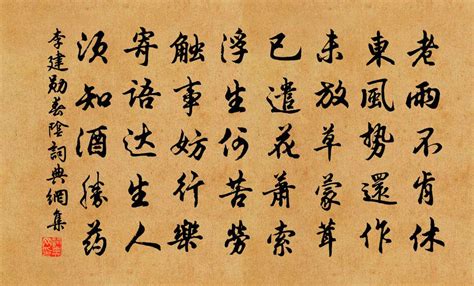 老雨不肯休
東風勢還作
未放草蒙茸
已遣花蕭索
浮生何苦勞
触事妨行樂
寄語达生人
须知酒勝药
李建勋春陰詞典網集